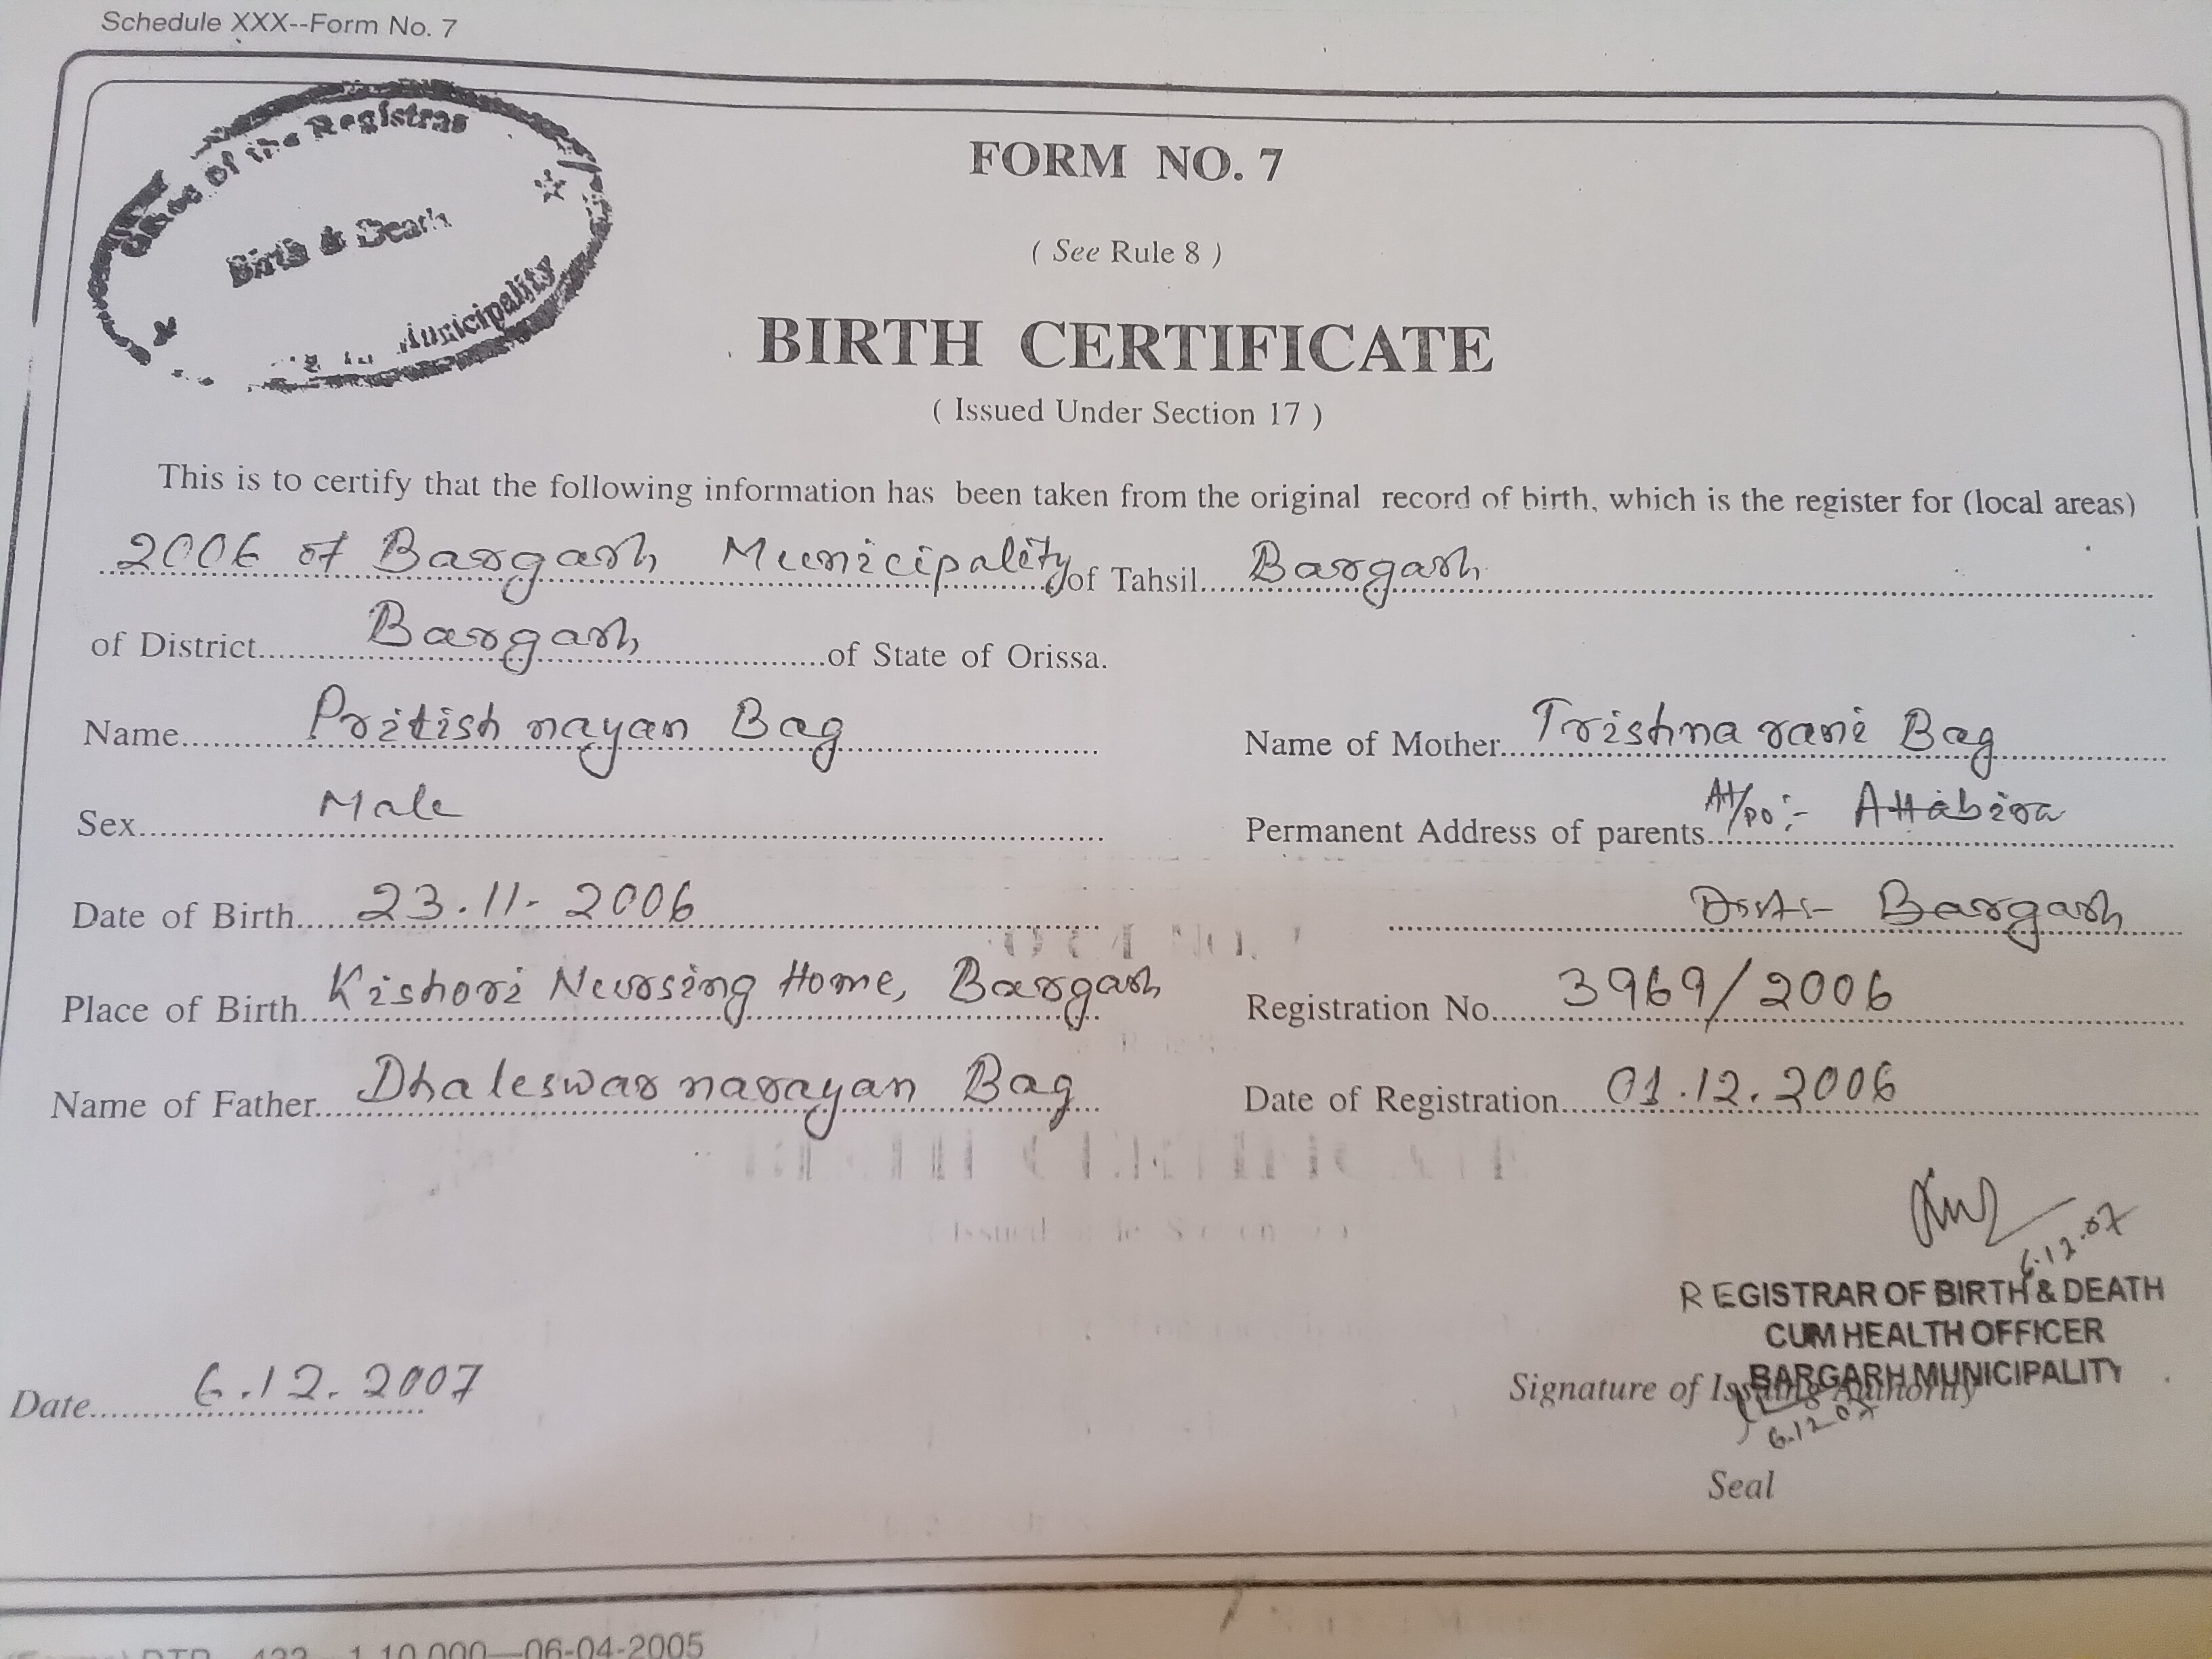 Schedule XXX--Form No. 7
of the Registrar
Birth & Death
Municipality
FORM NO. 7
( See Rule 8 )
BIRTH CERTIFICATE
( Issued Under Section 17 )
This is to certify that the following information has been taken from the original record of birth, which is the register for (local areas)
2006 of Bargarh Municipality of Tahsil Bargarh
of District Bargarh of State of Orissa.
Name Pritish nayan Bag
Name of Mother Trishna rani Bag
Sex Male
Permanent Address of parents At/po :- Attabira
Date of Birth 23.11.2006
Dist- Bargarh
Place of Birth Kishori Nursing Home, Bargarh
Registration No. 3969/2006
Name of Father Dhaleswar narayan Bag
Date of Registration 01.12.2006
6.12.07
REGISTRAR OF BIRTH & DEATH
CUM HEALTH OFFICER
BARGARH MUNICIPALITY
Date 6.12.2007
Signature of Issuing Authority
6.12.07
Seal
1,10,000—06-04-2005